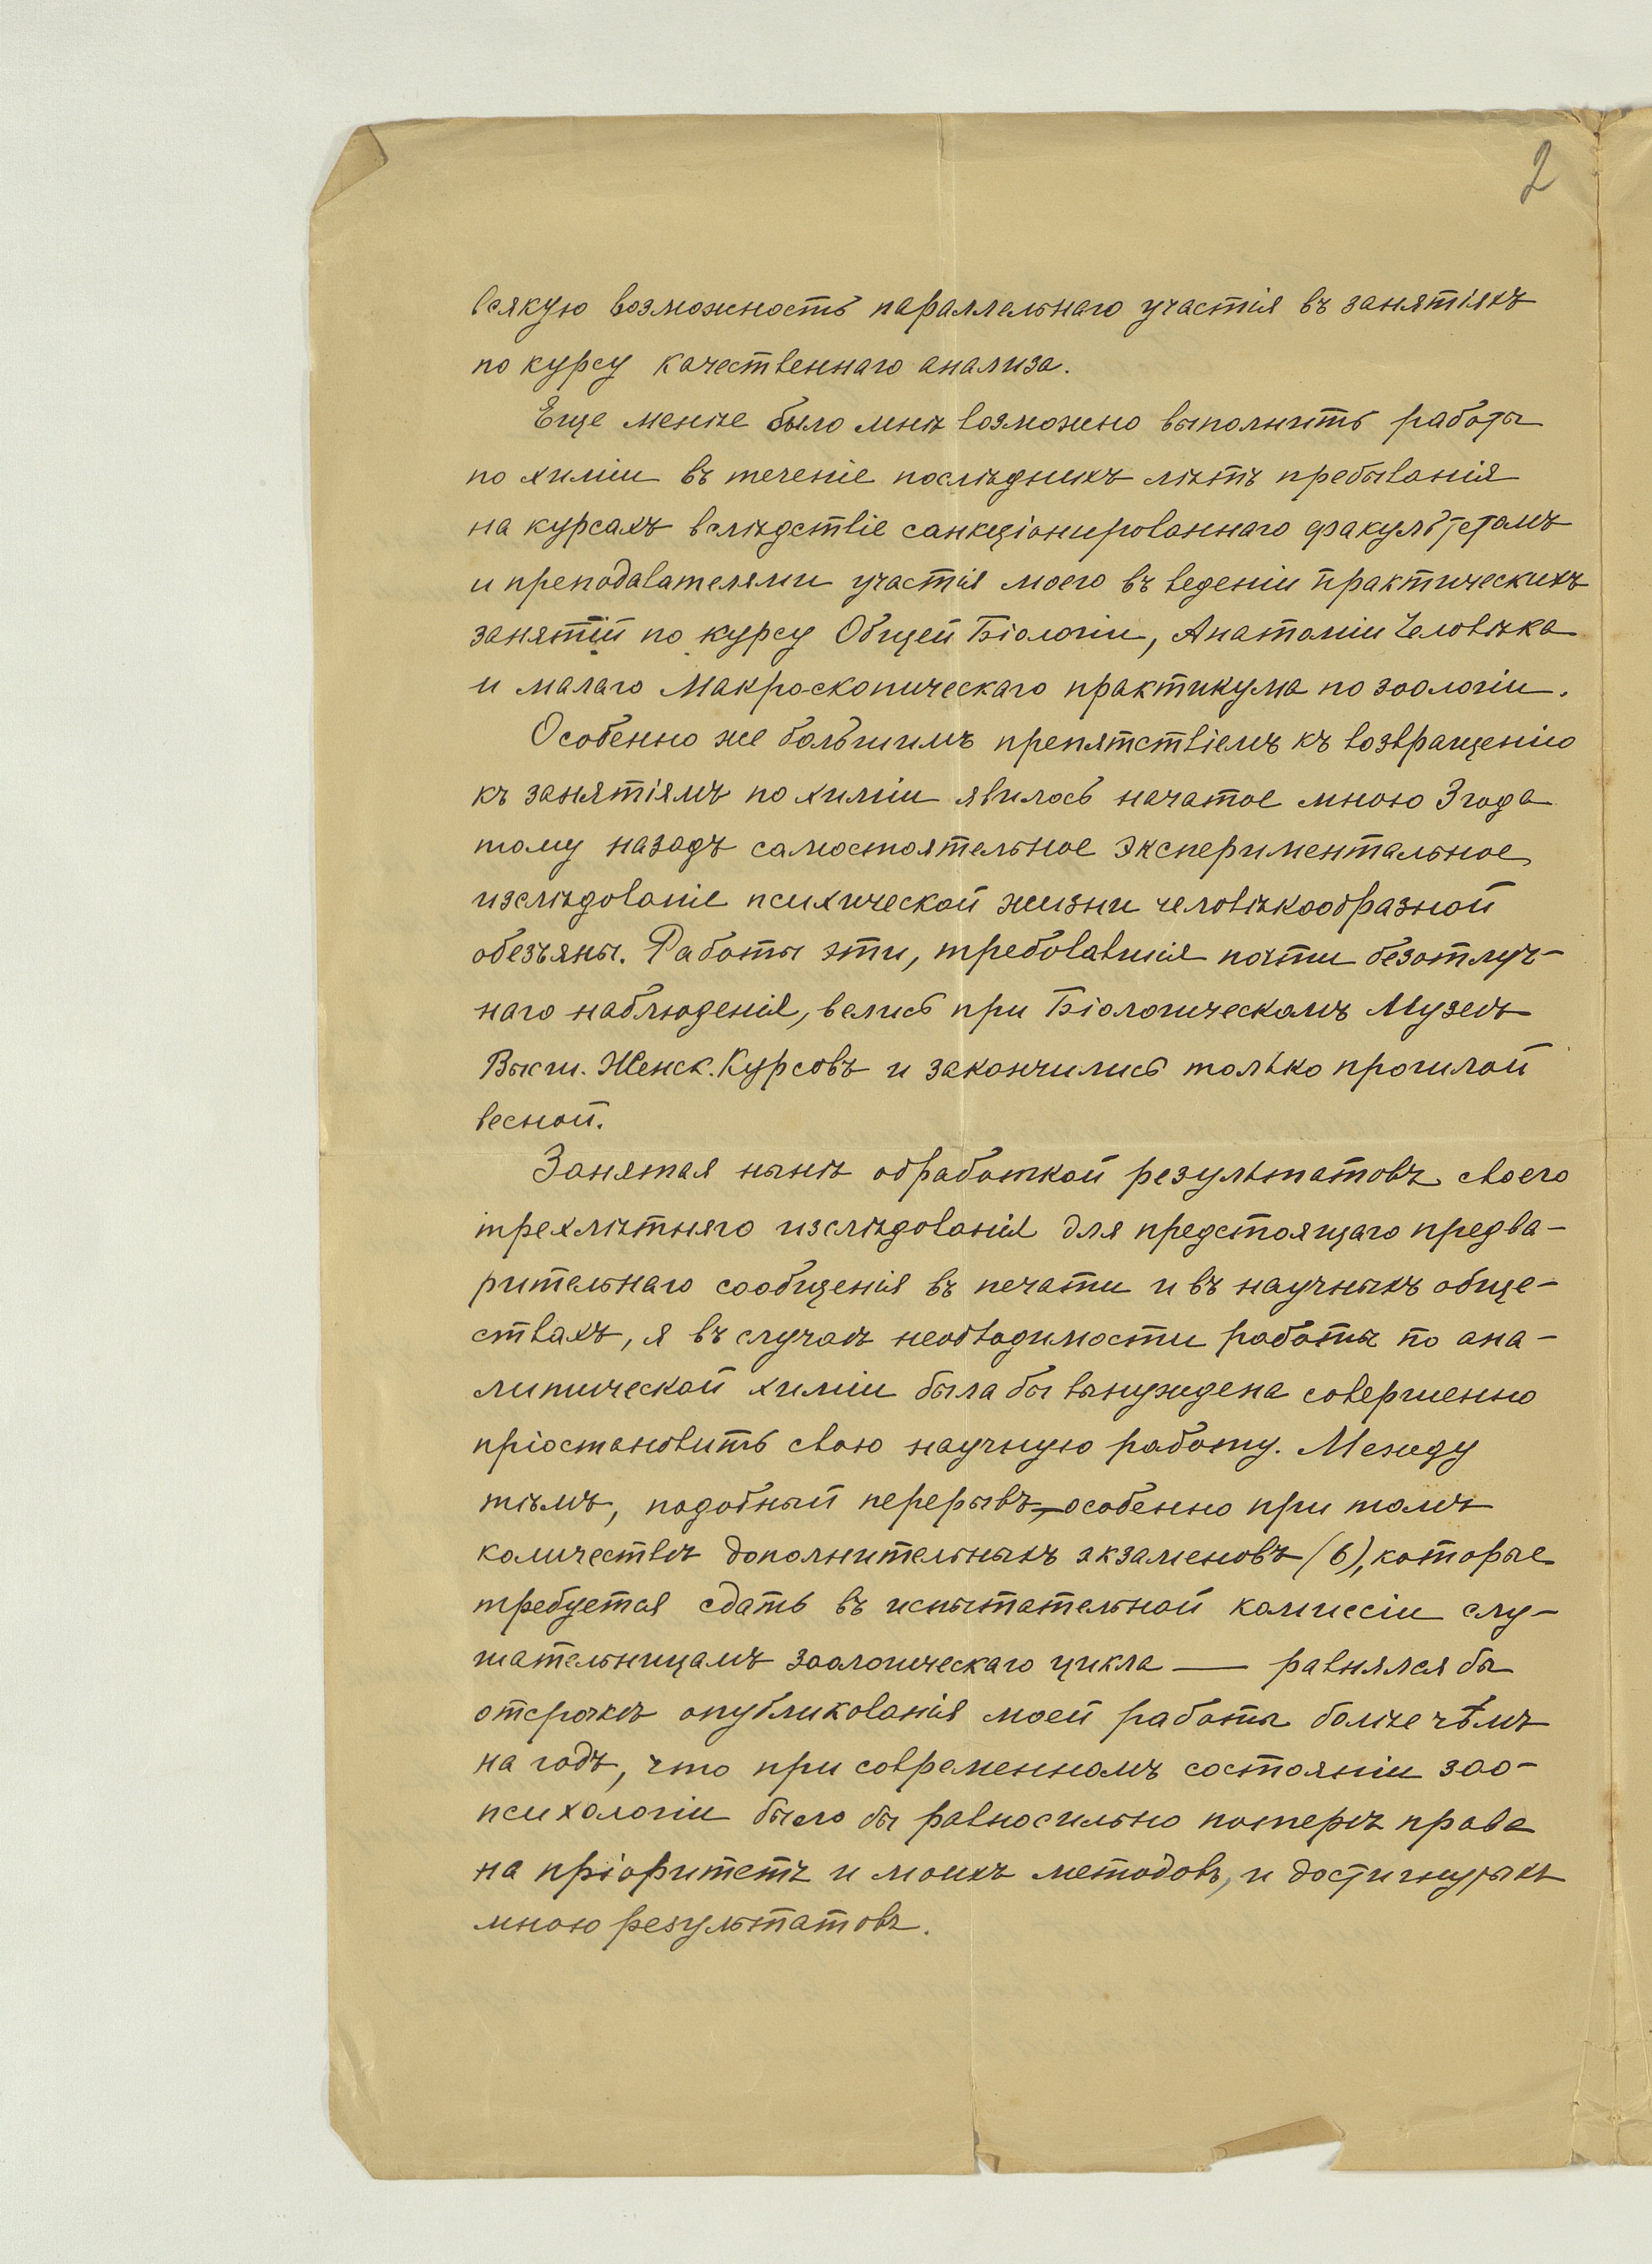 2
всякую возможность параллельнаго участія въ занятіяхъ
по курсу качественнаго анализа.
Еще менѣе было мнѣ возможно выполнить работы
по химіи въ теченіе послѣднихъ лѣтъ пребыванія
на курсахъ вслѣдствіе санкціонированнаго факультетомъ
и преподавателями участія моего въ веденіи практическихъ
занятій по курсу Общей Біологіи, Анатоміи Человѣка
и малаго Макро-скопическаго практикума по зоологіи.
Особенно же большимъ препятствіемъ къ возвращенію
къ занятіямъ по химіи явилось начатое мною 3 года
тому назадъ самостоятельное экспериментальное
изслѣдованіе психической жизни человѣкообразной
обезъяны. Работы эти, требовавшія почти безотлуч-
наго наблюденія, велись при Біологическомъ Музеѣ
Высш. Женск. Курсовъ и закончились только прошлой
весной.
Занятая нынѣ обработкой результатовъ своего
трехлѣтняго изслѣдованія для предстоящаго предва-
рительнаго сообщенія въ печати и въ научныхъ обще-
ствахъ, я въ случаѣ необходимости работы по ана-
литической химіи была бы вынуждена совершенно
пріостановить свою научную работу. Между
тѣмъ, подобный перерывъ,—особенно при томъ
количествѣ дополнительныхъ экзаменовъ (6), которые
требуется сдать въ испытательной комиссіи слу-
шательницамъ зоологическаго цикла — равнялся бы
отсрочкѣ опубликованія моей работы болѣе чѣмъ
на годъ, что при современномъ состояніи зоо-
психологіи было бы равносильно потерѣ права
на пріоритетъ и моихъ методовъ, и достигнутыхъ
мною результатовъ.